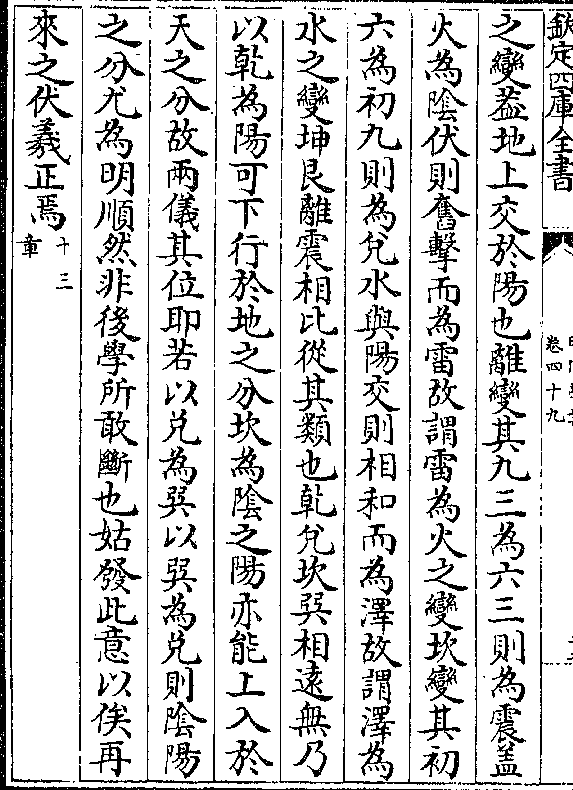 欽定四庫全書
卷四十九
之變葢地上交於陽也離變其九三為六三則為震盖
火為陰伏則奮擊而為雷故謂雷為火之變坎變其初
六為初九則為兌水與陽交則相和而為澤故謂澤為
水之變坤艮離震相比從其類也乾兌坎巽相遠無乃
以乾為陽可下行於地之分坎為陰之陽亦能上入於
天之分故兩儀其位耶若以兌為巽以巽為兌則陰陽
之分尤為明順然非後學所敢斷也姑發此意以俟再
來之伏羲正焉十三章